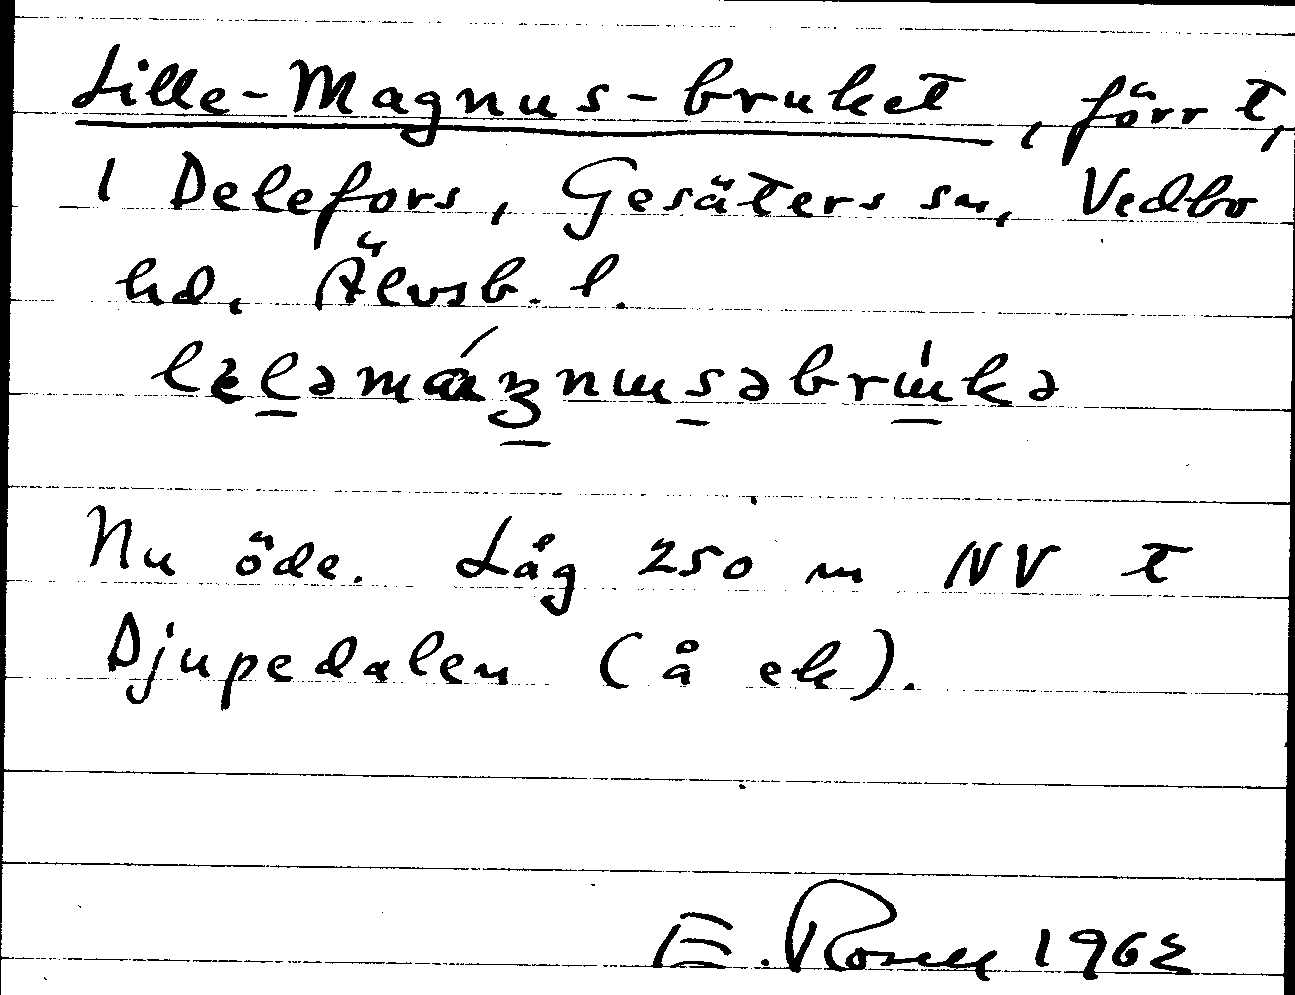 Lille-Magnus-bruket, förr t,
1 Delefors, Gesäters sn, Vedbo
hd, Älvsb. l.
Nu öde. Låg 250 m NV t
Djupedalen (å ek).
E. Rosell 1962